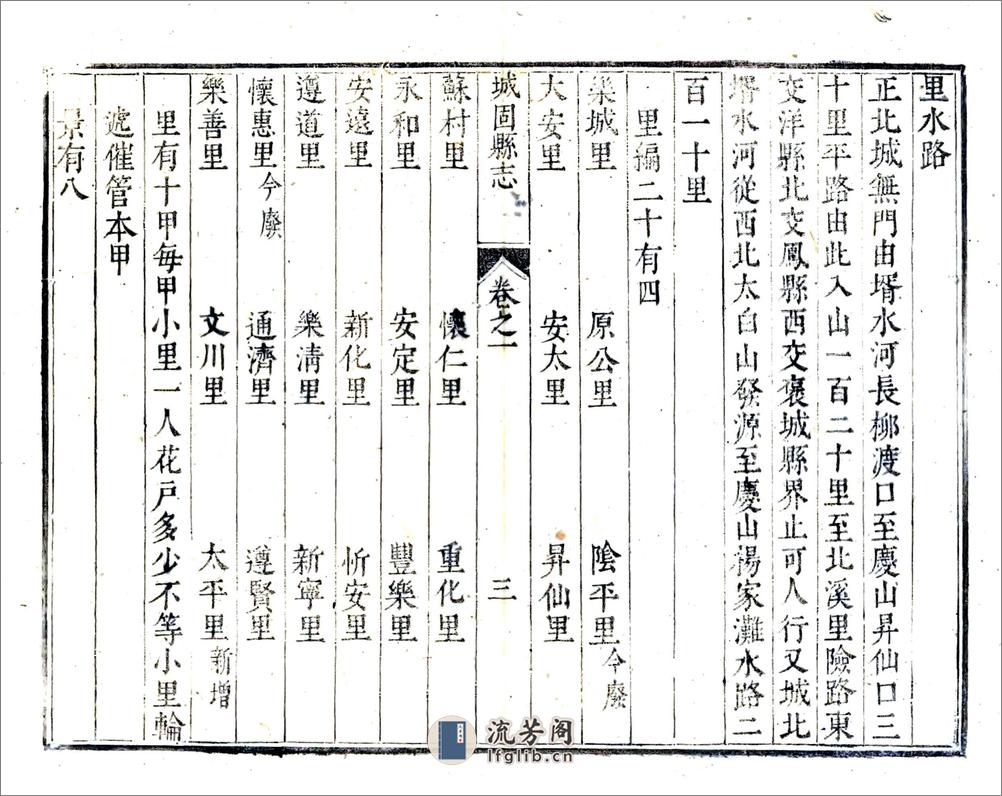 里水路
正北城無門由壻水河長柳渡口至慶山昇仙口三
十里平路由此入山一百二十里至北溪里險路東
交洋縣北交鳳縣西交褒城縣界止可人行又城北
壻水河從西北太白山發源至慶山楊家灘水路二
百一十里
里編二十有四
樂城里 原公里 陰平里今廢
大安里 安太里 昇仙里
城固縣志 卷之一 三
蘇村里 懷仁里 重化里
永和里 安定里 豐樂里
安遠里 新化里 忻安里
遵道里 樂清里 新寧里
懷惠里今廢 通濟里 遵賢里
樂善里 文川里 太平里新增
里有十甲每甲小里一人花戶多少不等小里輪
遞催管本甲
景有八
流芳阁
lfglib.cn